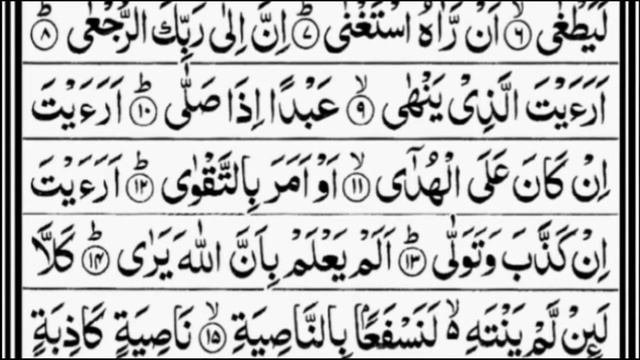 لَيَطْغٰۤى ۙ‏﴿۶﴾ اَنْ رَّاٰهُ اسْتَغْنٰى ؕ‏﴿۷﴾ اِنَّ اِلٰى رَبِّكَ الرُّجْعٰى ؕ‏﴿۸﴾
اَرَءَيْتَ الَّذِىْ يَنْهٰى ۙ‏﴿۹﴾ عَبْدًا اِذَا صَلّٰى ؕ‏﴿۱۰﴾ اَرَءَيْتَ
اِنْ كَانَ عَلَى الْهُدٰٓى ۙ‏﴿۱۱﴾ اَوْ اَمَرَ بِالتَّقْوٰى ؕ‏﴿۱۲﴾ اَرَءَيْتَ
اِنْ كَذَّبَ وَتَوَلّٰى ؕ‏﴿۱۳﴾ اَلَمْ يَعْلَمْ بِاَنَّ اللّٰهَ يَرٰى ؕ‏﴿۱۴﴾ كَلَّا
لَئِنْ لَّمْ يَنْتَهِ ۙ لَنَسْفَعًۢا بِالنَّاصِيَةِ ۙ‏﴿۱۵﴾ نَاصِيَةٍ كَاذِبَةٍ